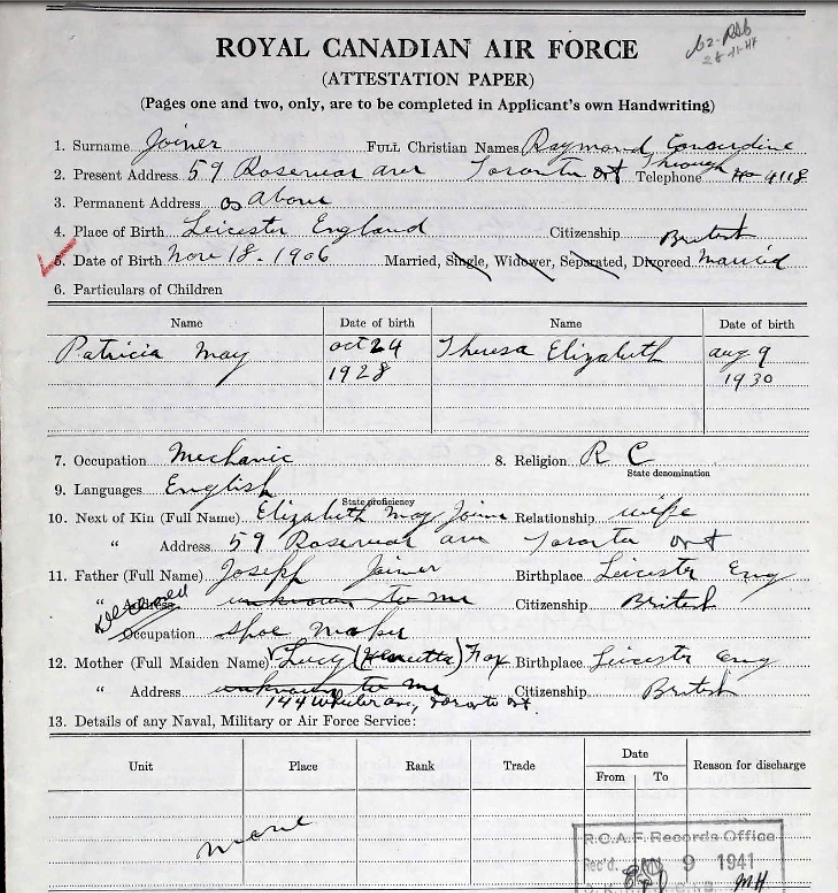 62-
28-11-41
ROYAL CANADIAN AIR FORCE
(ATTESTATION PAPER)
(Pages one and two, only, are to be completed in Applicant's own Handwriting)
1. Surname Joiner FULL Christian Names Raymond
2. Present Address 59 ave Toronto ont Telephone Through 4118
3. Permanent Address as Above
4. Place of Birth Leicester England Citizenship British
5. Date of Birth Nov 18. 1906 Married, Single, Widower, Separated, Divorced Married
6. Particulars of Children
Name Date of birth Name Date of birth
Patricia May oct 24 Theresa Elizabeth aug 9
1928 1930
7. Occupation Mechanic 8. Religion R C
State denomination
9. Languages English
State proficiency
10. Next of Kin (Full Name) Elizabeth May Joiner Relationship wife
" Address 59 ave Toronto ont
11. Father (Full Name) Joseph Joiner Birthplace Leicester Eng
" Address unknown to me Citizenship British
Deceased
Occupation Shoe Maker
12. Mother (Full Maiden Name) Lucy (Henrietta) Fox Birthplace Leicester Eng
" Address unknown to me Citizenship British
144 ave, Toronto ont.
13. Details of any Naval, Military or Air Force Service:
Unit Place Rank Trade Date Reason for discharge
From To
none
R.C.A.F. Records Office
Rec'd. 9 1941
MH